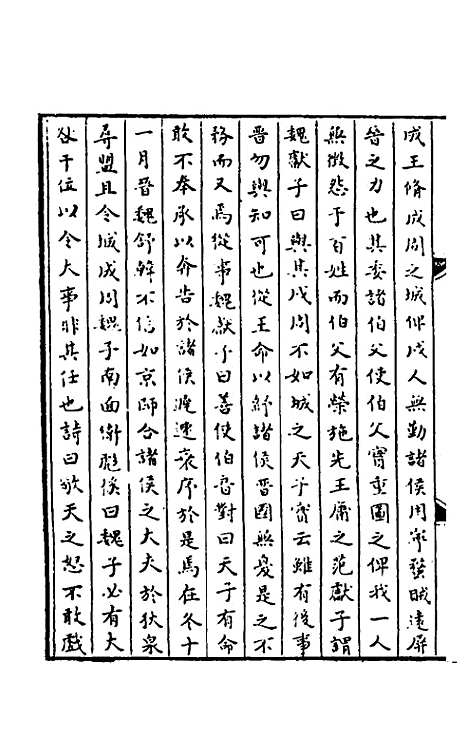 成王脩成周之城俾戍人無勤諸侯用寧蟊賊遠屏
晉之力也其委諸伯父使伯父實重圖之俾我一人
無徵怨于百姓而伯父有榮施先王庸之范獻子謂
魏獻子曰與其戍周不如城之天子實云雖有後事
晉勿與知可也從王命以紓諸侯晉國無憂是之不
務而又焉從事魏獻子曰善使伯音對曰天子有命
敢不奉承以奔告於諸侯遲速衰序於是焉在冬十
一月晉魏舒韓不信如京師合諸侯之大夫於狄泉
尋盟且令城成周魏子南面衛彪傒曰魏子必有大
咎干位以令大事非其任也詩曰敬天之怒不敢戲